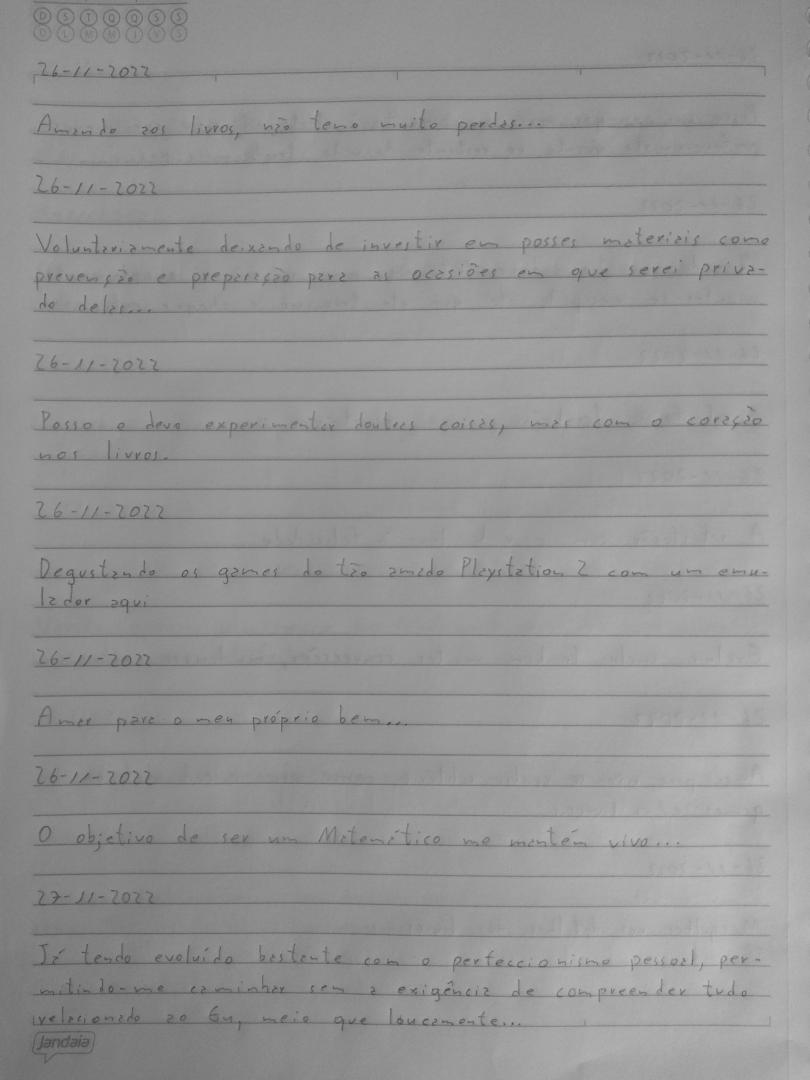 D S T Q Q S S
D L M M J V S
26-11-2022
Amando aos livros, não temo muito perdas...
26-11-2022
Voluntariamente deixando de investir em posses materiais como
prevenção e preparação para as ocasiões em que serei priva-
do delas...
26-11-2022
Posso e devo experimentar doutras coisas, mas com o coração
nos livros.
26-11-2022
Degustando os games do tão amado Playstation 2 com um emu-
lador aqui
26-11-2022
Amar para o meu próprio bem...
26-11-2022
O objetivo de ser um Matemático me mantém vivo...
27-11-2022
Já tendo evoluído bastante com o perfeccionismo pessoal, per-
mitindo-me caminhar sem a exigência de compreender tudo
relacionado ao Eu, meio que loucamente...
Jandaia